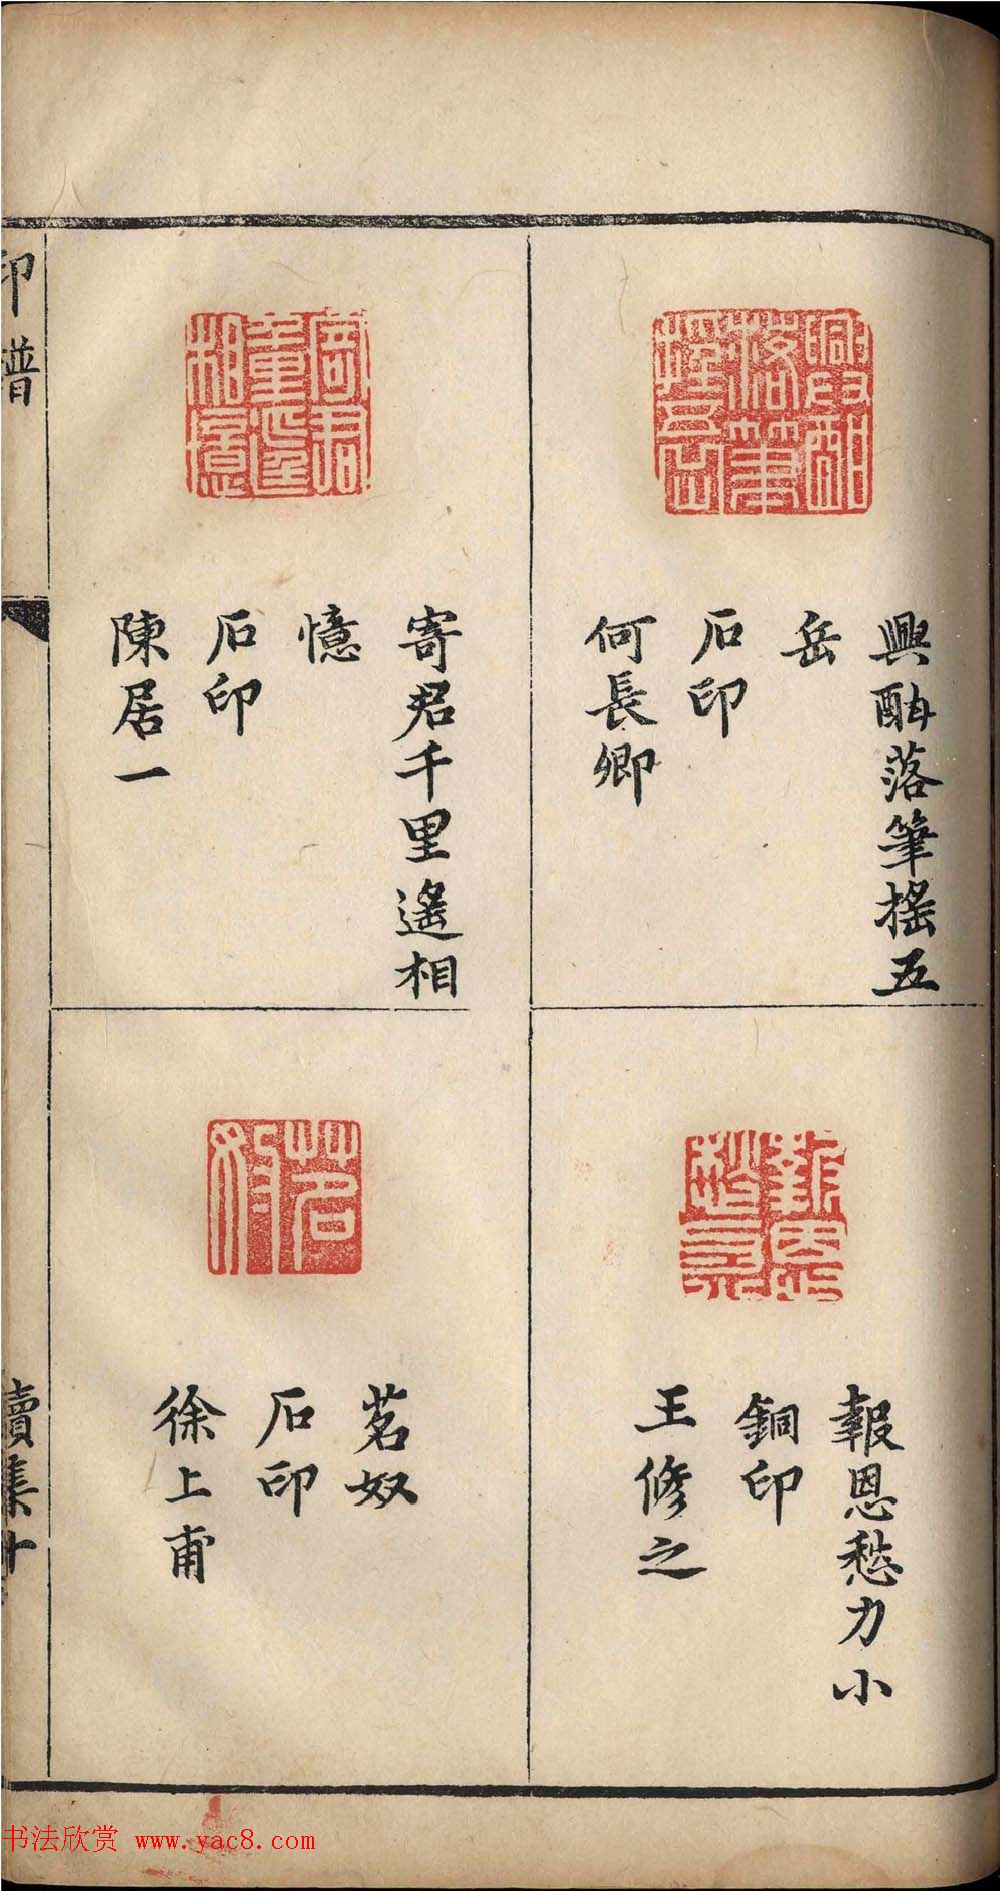 興酣落筆搖五
岳
石印
何長卿
報恩愁力小
銅印
王修之
寄君千里遙相
憶
石印
陳居一
茗奴
石印
徐上甫
印譜
續集十
书法欣赏 www.yac8.com